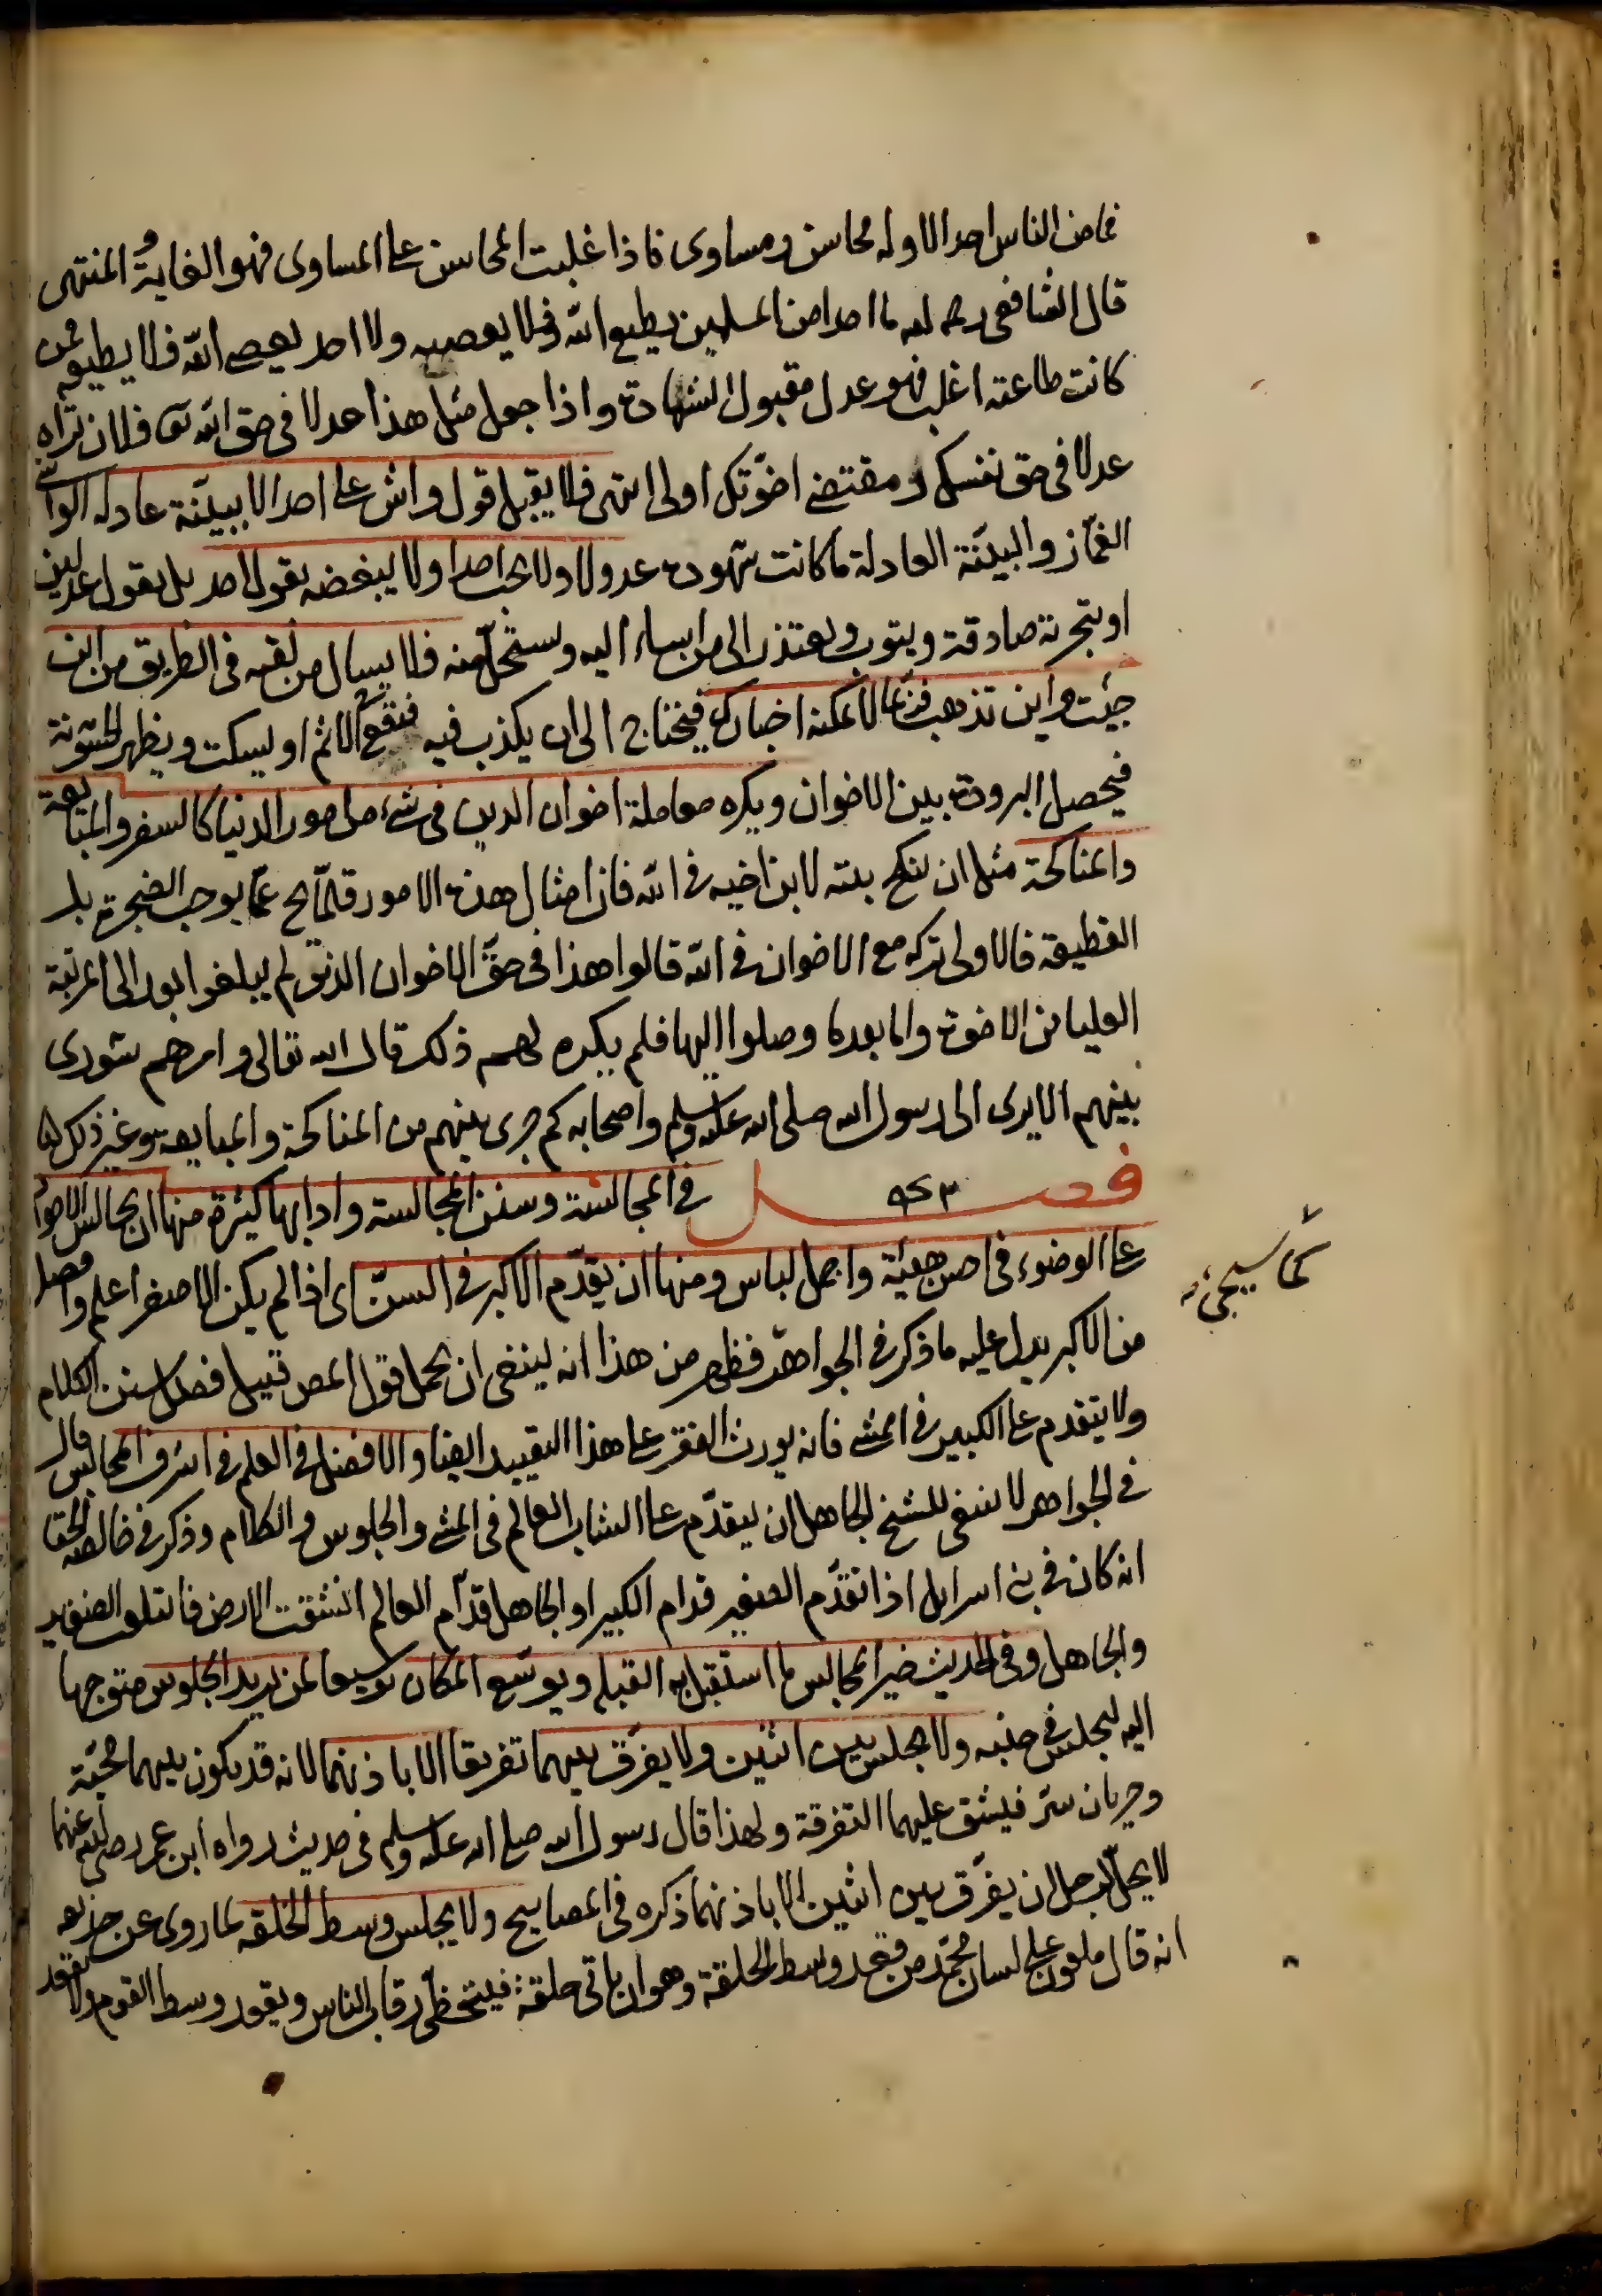 فما من الناس احد الا وله محاسن ومساوى فاذا غلبت المحاسن على المساوى فهو الغاية والمنتهى
قال الشافعى رحمه الله ما احد من المسلمين يطيع الله فلا يعصيه ولا احد يعصى الله فلا يطيعه فمن
كانت طاعته اغلب فهو عدل مقبول الشهادة واذا جعل مثل هذا عدلا فى حق الله تعا فلان تراه
عدلا فى حق نفسك ومقتضى اخوّتك اولى انتهى فلا يقبل قول واش على احد الا ببيّنة عادلة الواشى
الغمّاز والبيّنة العادلة ما كانت شهوده عدولا ولا يحب احدا ولا يبغضه بقول احد بل بقول عدلين
او بتجربة صادقة ويتوب ويعتذر الى من اساء اليه ويستحلّ منه فلا يسال من لقيه فى الطريق من اين
جئت واين تذهب فربّما لا يمكنه اخبارك فيحتاج الى ان يكذب فيه فيقع فى الاثم او يسكت ويظهر الخشونة
فيحصل البرودة بين الاخوان ويكره معاملة اخوان الدين فى شىء من امور الدنيا كالسفر والمبايعة
والمناكحة مثل ان ينكح بنته لابن اخيه فى الله فان امثال هذه الامور قلّما يخ عمّا يوجب الضجرة بل
القطيعة فالاولى تركه مع الاخوان فى الله قالوا هذا فى حقّ الاخوان الذين لم يبلغوا بعد الى المرتبة
العليا من الاخوة واما بعدما وصلوا اليها فلم يكره لهم ذلك قال الله تعالى وامرهم شورى
بينهم الا يرى الى رسول الله صلى الله عليه وسلم واصحابه كم جرى بينهم من المناكحة والمبايعة وغير ذلك
فصل فى المجالسة وسنن المجالسة وادابها كثيرة منها ان يجالس الاخوان
على الوضوء فى احسن هيئة واجمل لباس ومنها ان يقدّم الاكبر فى السنّ اى اذا لم يكن الاصغر اعلم وافضل
من الاكبر يدل عليه ما ذكر فى الجواهر فظهر من هذا انه ينبغى ان يحمل قول المص قبيل فصل سنن الكلام
ولا يتقدم على الكبير فى المشى فانه يورث الفقر على هذا التقييد ايضا والافضل فى العلم فى اشرف المجالس قال
فى الجواهر لا ينبغى للشيخ الجاهل ان يتقدّم على الشاب العالم فى المشى والجلوس والكلام وذكر فى خالصة الحقا
انه كان فى بنى اسرايل اذا تقدّم الصغير قدام الكبير او الجاهل قدّام العالم انشقت الارض فابتلعت الصغير
والجاهل وفى الحديث خير المجالس ما استقبل به القبلة ويوسّع المكان توسيعا لمن يريد الجلوس متوجها
اليه ليجلس فى جنبه ولا يجلس بين اثنين ولا يفرّق بينهما تفريقا الا باذنهما لانه قد يكون بينهما محبّة
وجريان سرّ فيشق عليهما التفرقة ولهذا قال رسول الله صلى الله عليه وسلم فى حديث رواه ابن عمر رضى الله عنهما
لا يحلّ لرجل ان يفرّق بين اثنين الا باذنهما ذكره فى المصابيح ولا يجلس وسط الحلقة لما روى عن حذيفة
انه قال ملعون على لسان محمّد من قعد وسط الحلقة وهو ان ياتى حلقة فيتخطّى رقاب الناس ويقعد وسط القوم ولا يقعد
كما سيجئ